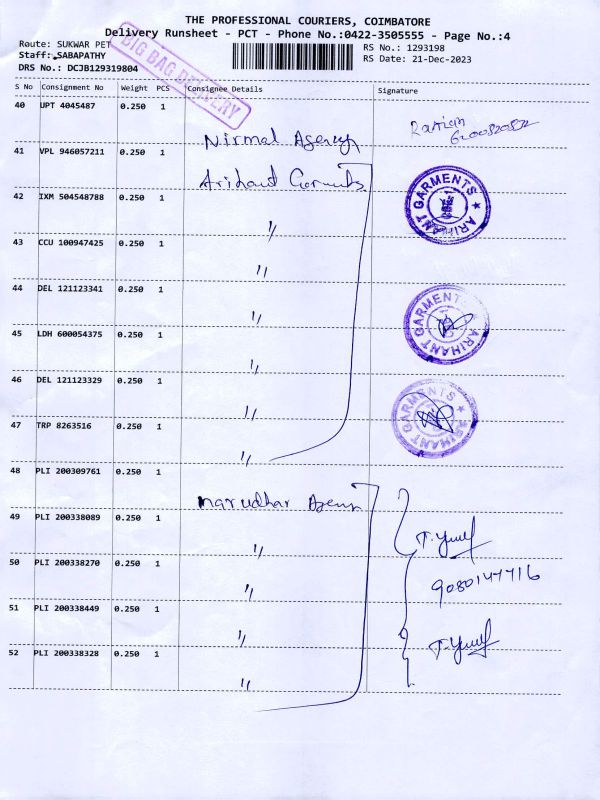 THE PROFESSIONAL COURIERS, COIMBATORE
Delivery Runsheet - PCT - Phone No.:0422-3505555 - Page No.:4
Route: SUKWAR PET
RS No.: 1293198
Staff:.SABAPATHY
RS Date: 21-Dec-2023
DRS No.: DCJB129319804
BIG BAG DELIVERY
S No Consignment No Weight PCS Consignee Details Signature
40 UPT 4045487 0.250 1
Nirmal Agency
41 VPL 946057211 0.250 1
Arihant Garments
ARIHANT GARMENTS
42 IXM 504548788 0.250 1
〃
43 CCU 100947425 0.250 1
〃
44 DEL 121123341 0.250 1
〃
ARIHANT GARMENTS
45 LDH 600054375 0.250 1
〃
46 DEL 121123329 0.250 1
〃
ARIHANT GARMENTS
47 TRP 8263516 0.250 1
〃
48 PLI 200309761 0.250 1
marudhar
49 PLI 200338089 0.250 1
〃
50 PLI 200338270 0.250 1
〃
9080147716
51 PLI 200338449 0.250 1
〃
52 PLI 200338328 0.250 1
〃